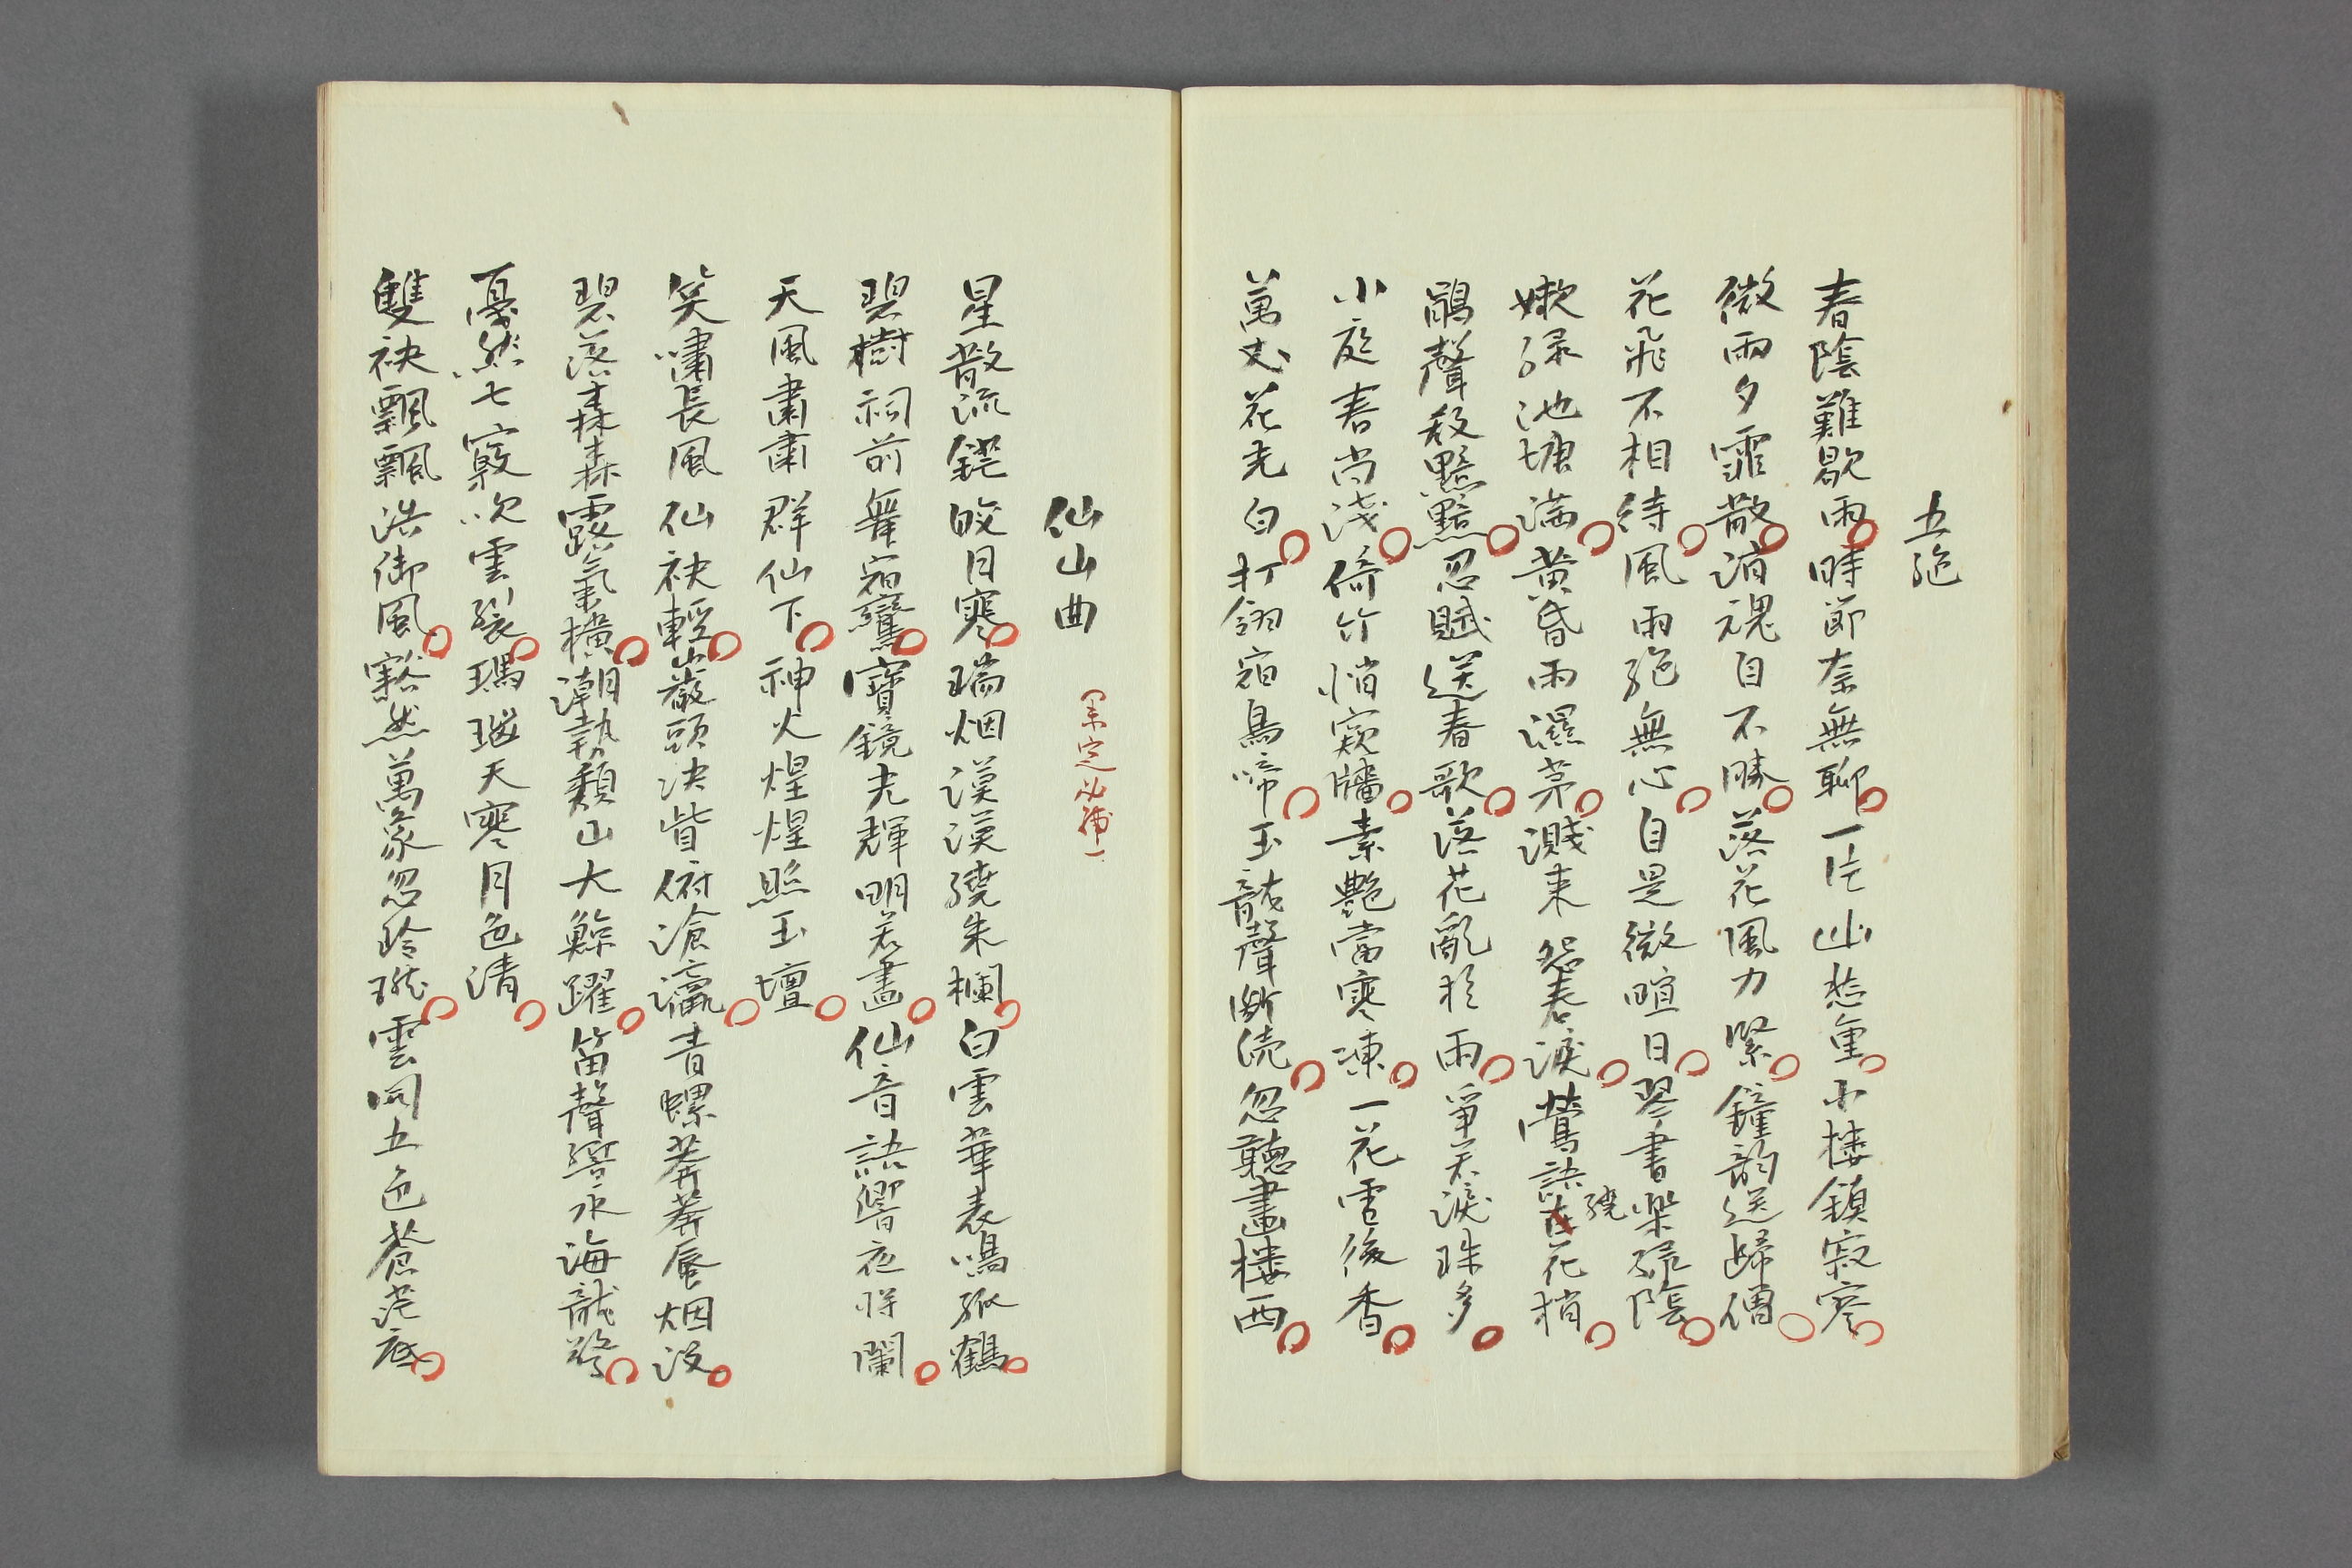 五絶
春陰難歇雨時節奈無聊一片山愁重小楼鎖寂寥
微雨夕霏散消魂自不勝落花風力緊鐘韵送帰僧
花飛不相待風雨絶無心自是微暄日琴書楽緑陰
嫩緑池塘満黄昏雨濕茅濺来怨春涙鶯語在花梢
繞
鵑聲殺黯黯忍賦送春歌落花亂於雨争若涙珠多
小庭春尚浅倚竹悄窺牆素艶當寒凍一花雪後香
萬丈花光白打翎宿鳥啼玉龍聲断続忽聽畫楼西
仙山曲
星散流鏗皎月寒瑞烟漠漠繞朱欄白雲華表鳴孤鶴
碧樹祠前舞宿鸞寶鏡光輝明若晝仙音語響夜将闌
天風肅肅群仙下神火煌煌照玉壇
笑嘯長風仙袂輕巌頭决眥俯滄瀛青螺莽莽蜃烟没
碧落森森露氣横潮勢頽山大鯨躍笛聲響水海龍驚
戛然七竅吹雲裂瑪瑙天寒月色清
雙袂飄飄浩御風豁然萬象忽玲瓏雲同五色蒼茫底